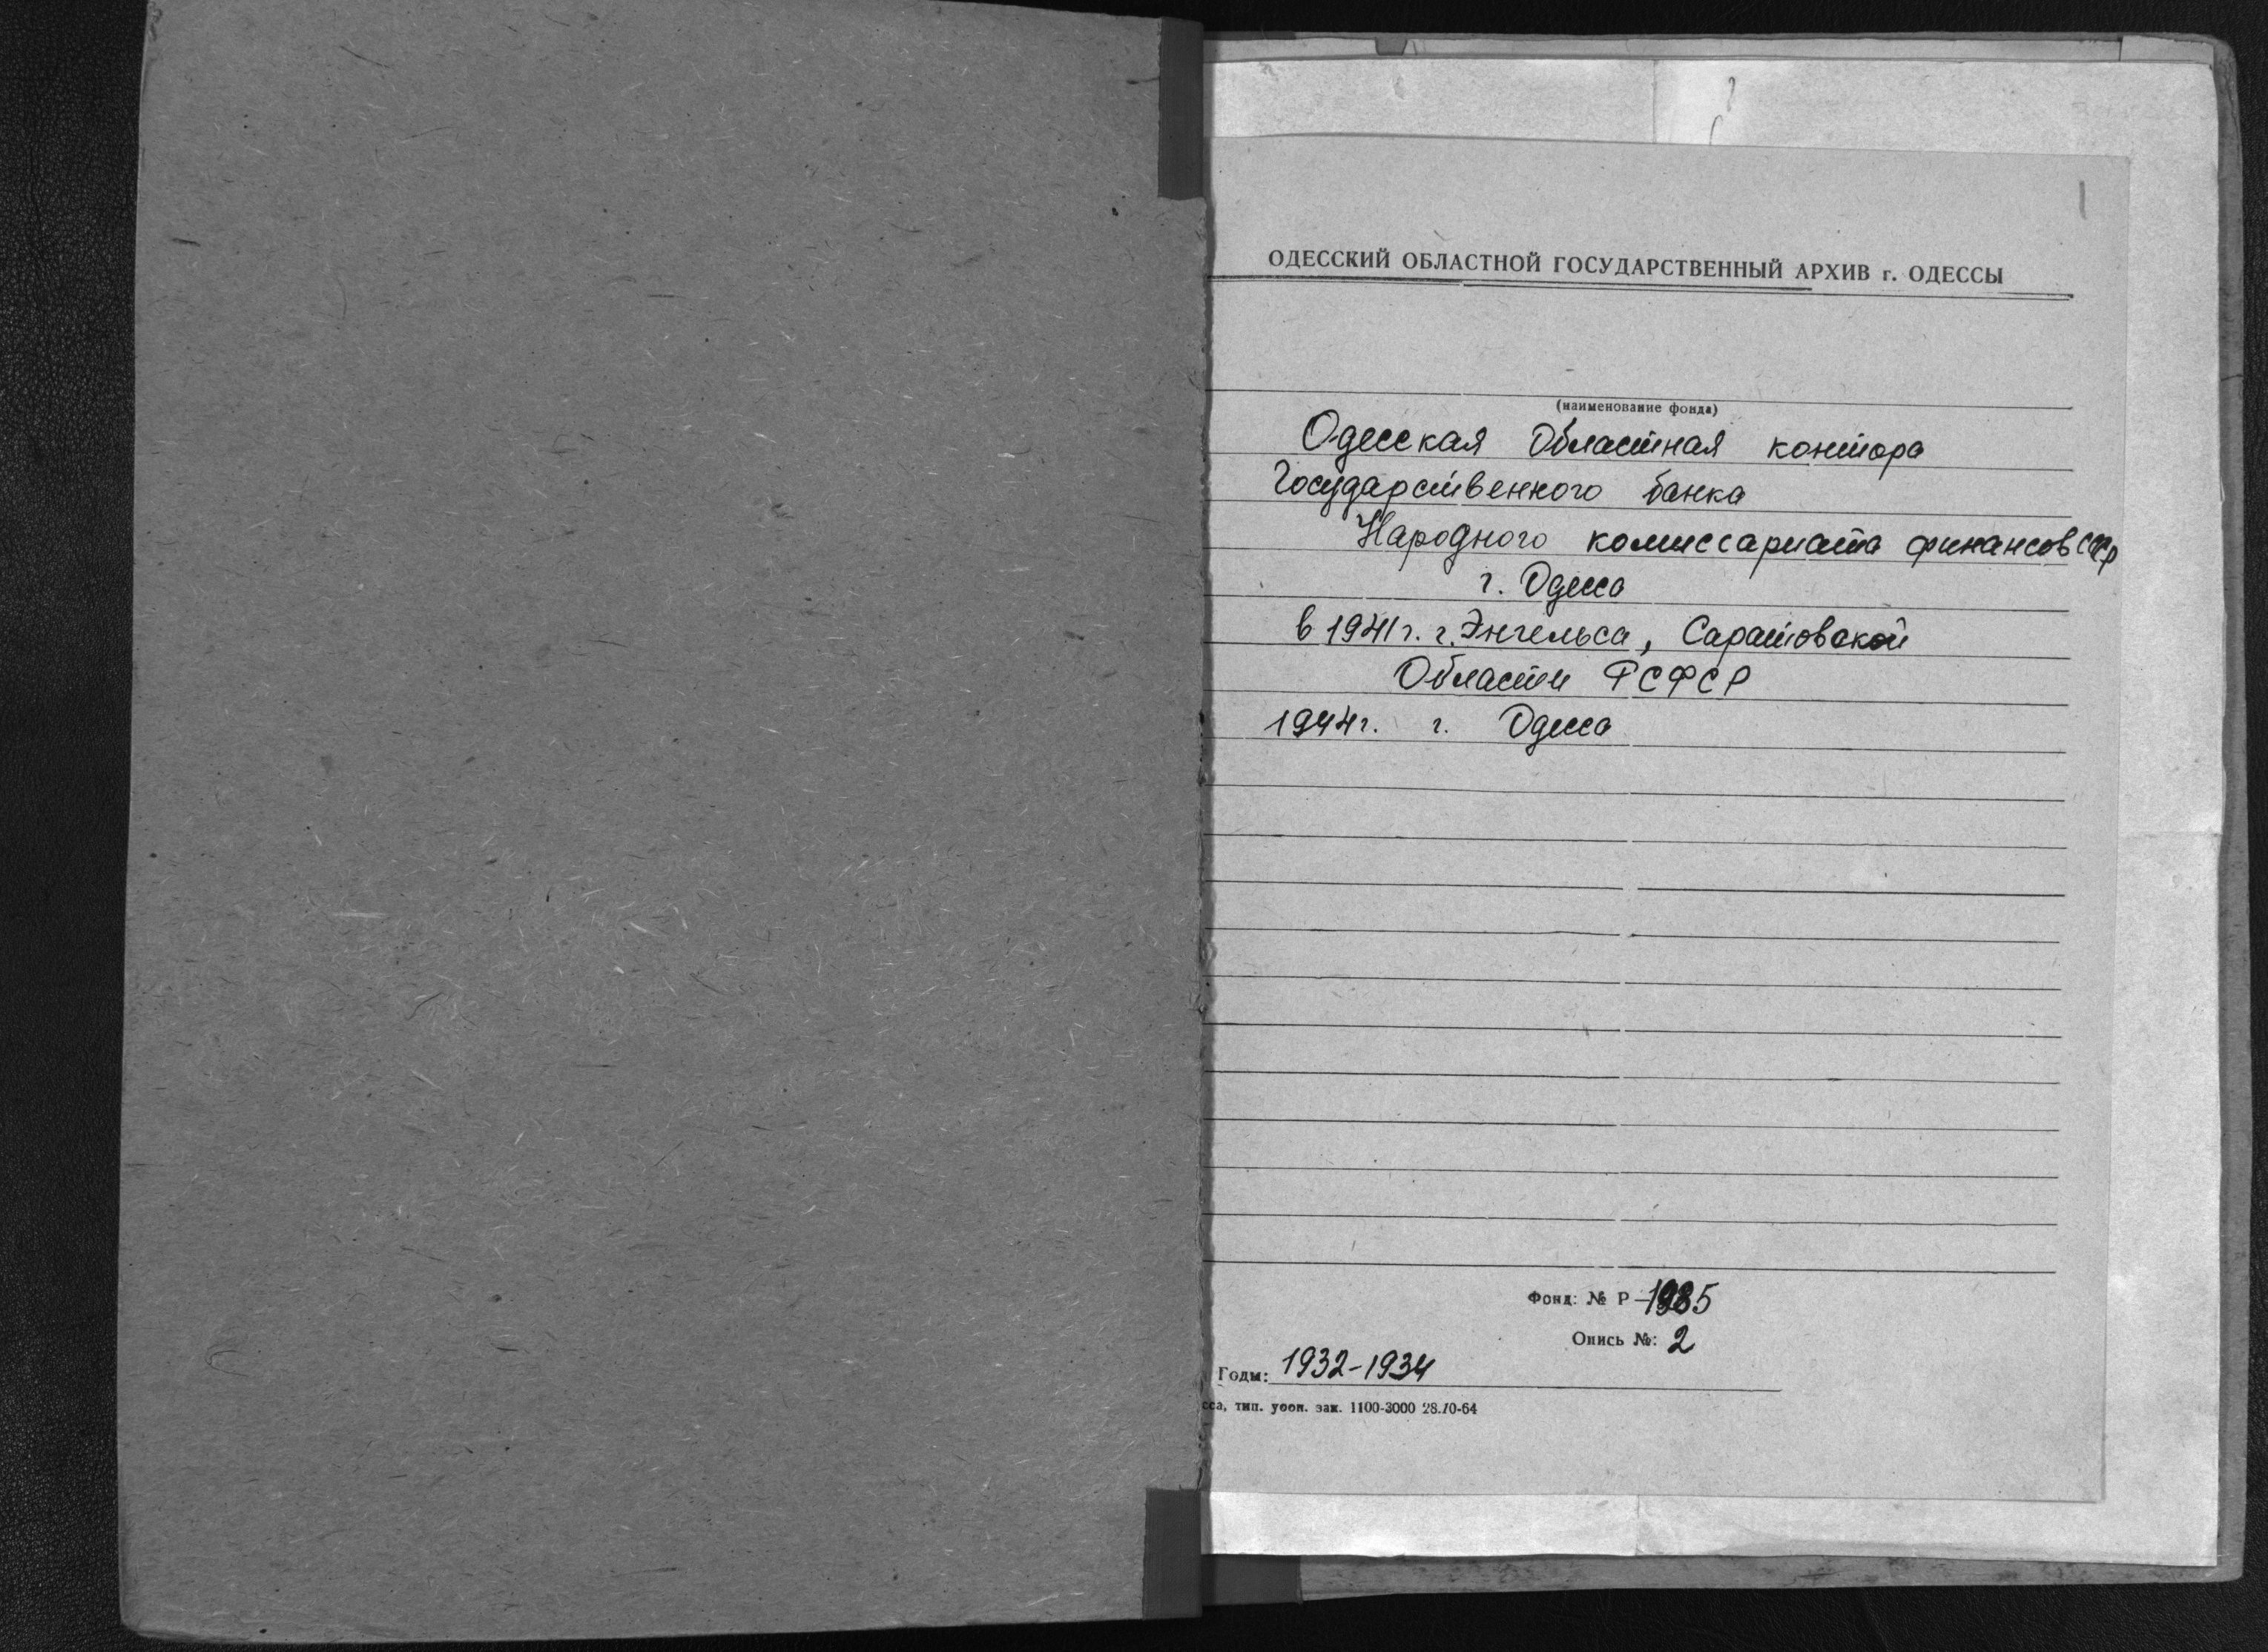 1
ОДЕССКИЙ ОБЛАСТНОЙ ГОСУДАРСТВЕННЫЙ АРХИВ г. ОДЕССЫ
(наименование фонда)
Одесская Областная контора
Государственного банка
Народного комиссариата финансов СССР
г. Одесса
в 1941г. г. Энгельса, Саратовской
Области РСФСР
1944г. г. Одесса
Фонд: № Р-1985
Опись №: 2
Годы: 1932-1934
сса, тип. зак. 1100-3000 28.10-64